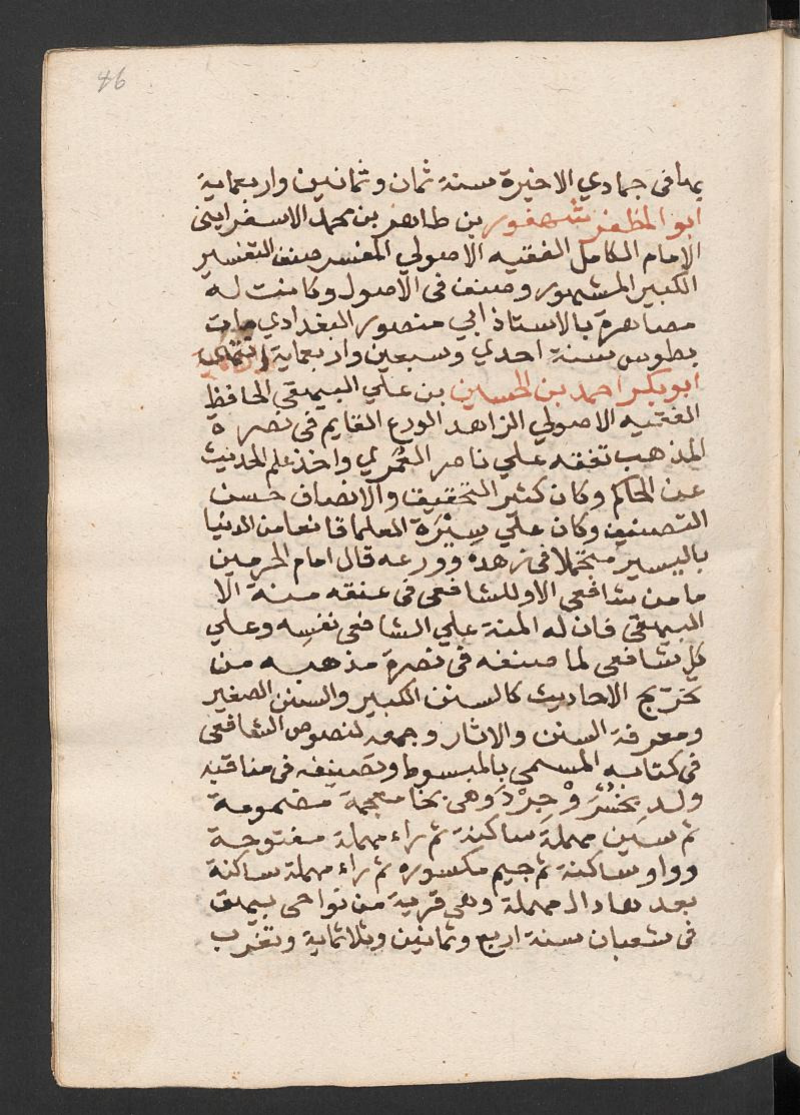 46
بها في جمادي الاخيرة سنة ثمان وثمانين واربعماية
ابو المظفر شهفور بن طاهر بن محمد الاسفرايني
الامام الكامل الفقيه الاصولي المفسر صنف التفسير
الكبير المشهور وصنف في الاصول وكانت له
مصاهرة بالاستاذ ابي منصور البغدادي مات
بطوس سنة احدي وسبعين واربعماية
ابو بكر احمد بن الحسين بن علي البيهقي الحافظ
الفقيه الاصولي الزاهد الورع القايم في نصرة
المذهب تفقه علي ناصر العُمَري واخذ علم الحديث
عن الحاكم وكان كثير التحقيق والانصاف حسن
التصنيف وكان علي سِيْرَة العلما قانعا من الدنيا
باليسير متجملا في زهده وورعه قال امام الحرمين
ما من شافعي الا وللشافعي في عنقه منة الا
البيهقي فان له المنة علي الشافعي نفسِه وعلي
كل شافعي لما صنفه في نصرة مذهبه من
تخريج الاحاديث كالسنن الكبير والسنن الصغير
ومعرفة السنن والاثار وجمعه لنصوص الشافعي
في كتابه المسمي بالمبسوط وتصنيفه في مناقبه
ولد بخُسْرَوْجِرْدَ وهي بخا معجمة مضمومة
ثم سين مهملة ساكنة ثم راء مهملة مفتوحة
وواو ساكنة ثم جيم مكسوره ثم راء مهملة ساكنة
بعدها دال مهملة وهي قرية من نواحي بيهق
في شعبان سنة اربع وثمانين وثلاثماية وتغرب